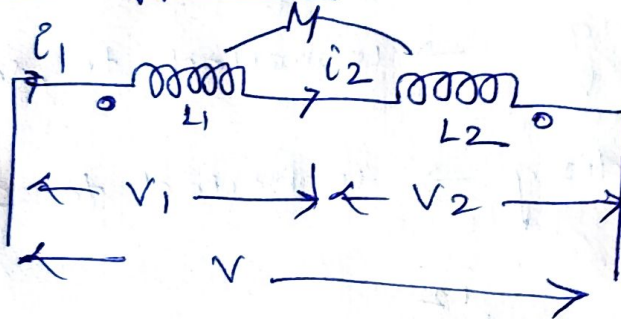 M
i1 i2
L1 L2
V1 V2
V